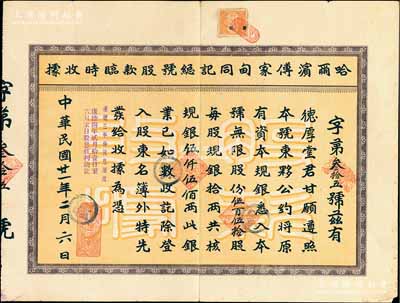 哈爾濱傅家甸同記總號股款臨時收據
字第叁拾五號茲有
德厚堂君甘願遵照
本號東夥公約將原
有資本現銀悉入本
號無限股份伍百伍拾股
每股現銀拾兩共核
現銀伍仟伍佰兩此銀
業已如數收訖除登
入股東名簿外特先
發給收據為憑
中華民國廿一年二月六日
字第叁拾五號